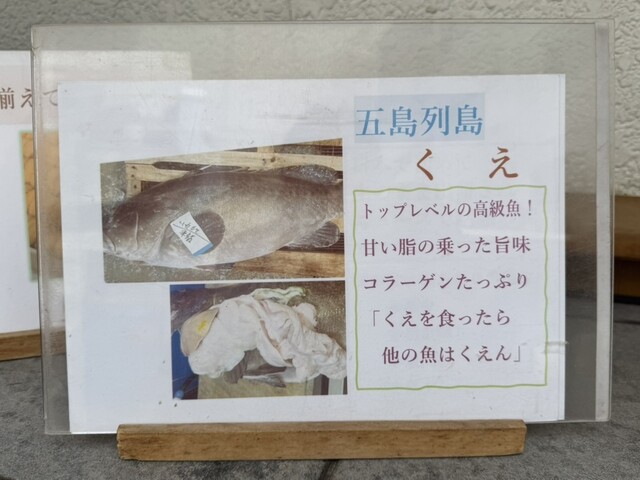 揃えて
五島列島
くえ
トップレベルの高級魚！
甘い脂の乗った旨味
コラーゲンたっぷり
「くえを食ったら
他の魚はくえん」